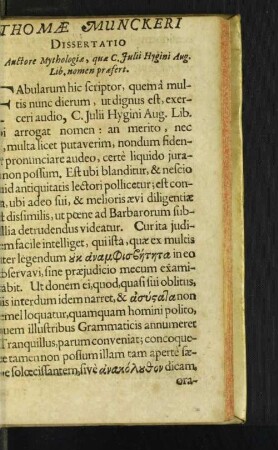 THOMÆ MUNCKERI
DISSERTATIO
Auctore Mythologiæ, quæ C. Julii Hygini Aug.
Lib. nomen præfert.
FAbularum hic scriptor, quem à mul-
tis nunc dierum, ut dignus est, exer-
ceri audio, C. Julii Hygini Aug. Lib.
bi arrogat nomen: an merito, nec
, multa licet putaverim, nondum fiden-
pronunciare audeo, certè liquido jura-
non possum. Est ubi blanditur, & nescio
uid antiquitatis lectori pollicetur; est con-
a, ubi adeo sui, & melioris ævi diligentiæ
t dissimilis, ut pœne ad Barbarorum sub-
llia detrudendus videatur. Cur ita judi-
em facile intelliget, qui ista, quæ ex multis
iter legendum ȣκ ἀναμφισβήτητα in eo
bservavi, sine præjudicio mecum exami-
abit. Ut donem ei, quod, quasi sui oblitus,
is interdum idem narret, & ἀσύςαλα non
emel loquatur, quam quam homini polito,
uem illustribus Grammaticis annumeret
Tranquillus, parum conveniat; concoque-
e tamen non possum illam tam apertè sæ-
e solœcissantem, sivè ἀνακόλȣθον dicam,
ora-